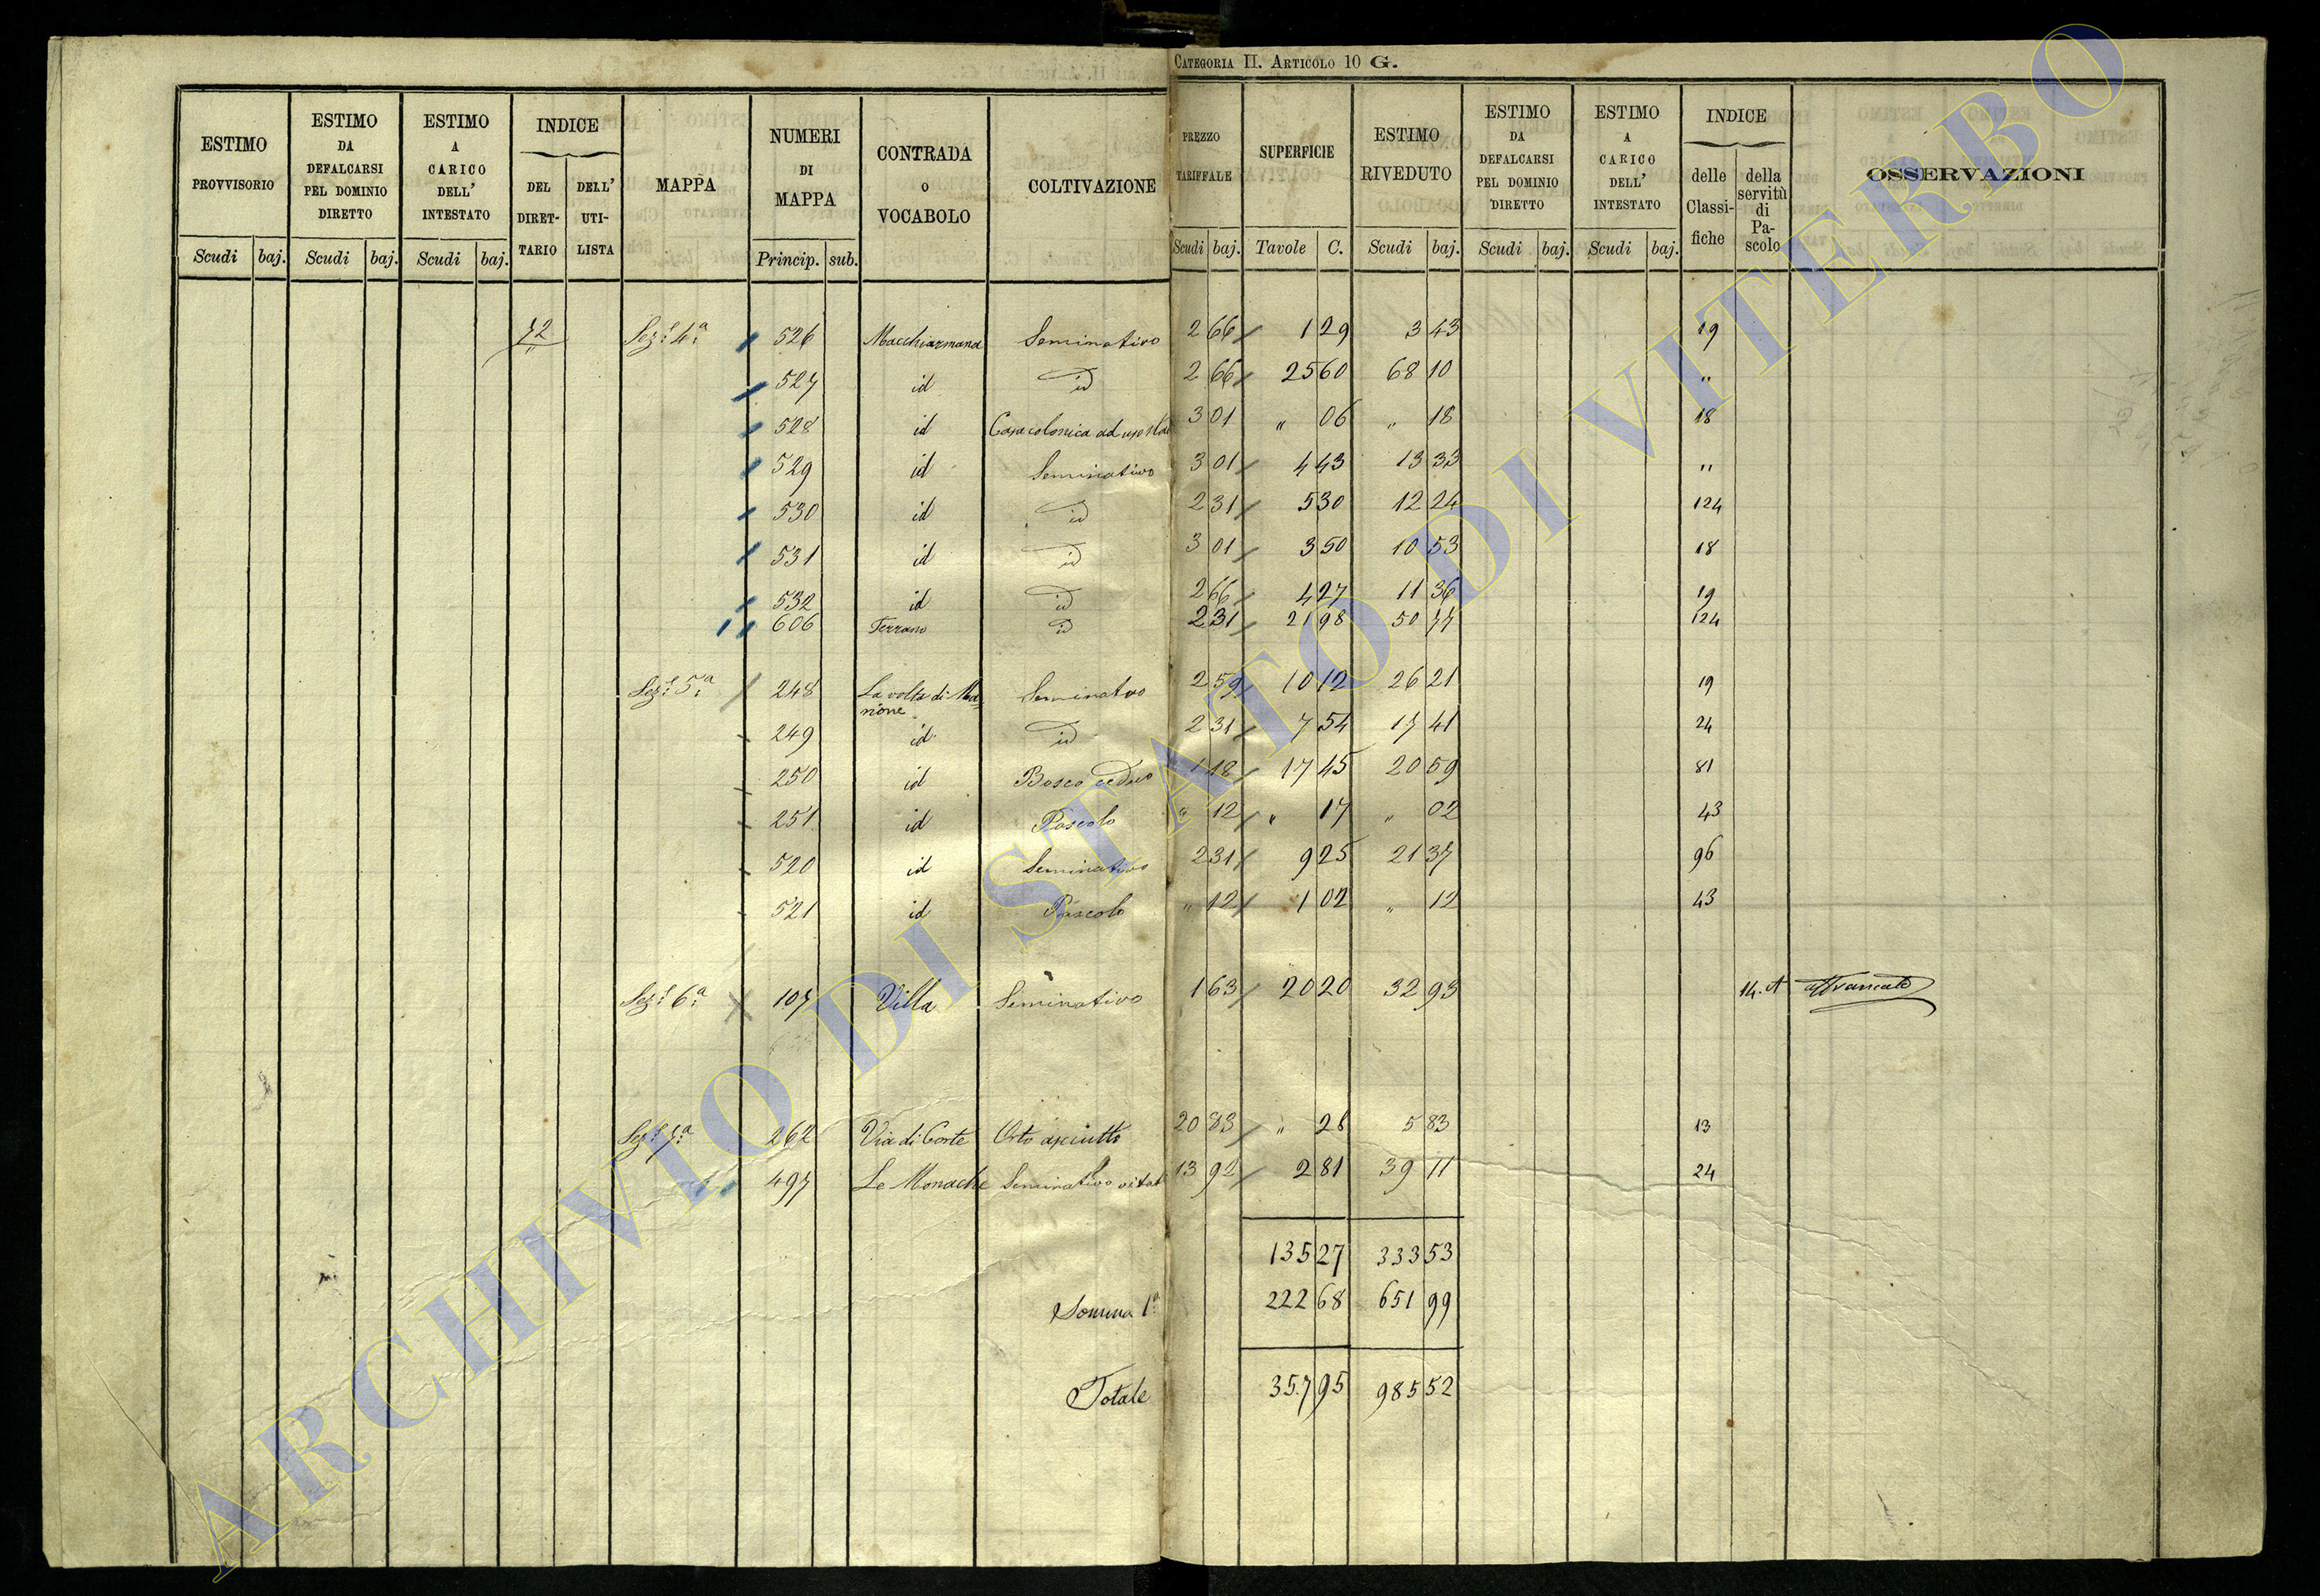 CATEGORIA II. ARTICOLO 10 G.
ESTIMO PROVVISORIO Scudi baj.
ESTIMO DA DEFALCARSI PEL DOMINIO DIRETTO Scudi baj.
ESTIMO A CARICO DELL' INTESTATO Scudi baj.
INDICE DEL DIRET-TARIO DELL' UTI-LISTA
MAPPA
NUMERI DI MAPPA Princip. sub.
CONTRADA O VOCABOLO
COLTIVAZIONE
PREZZO TARIFFALE Scudi baj.
SUPERFICIE Tavole C.
ESTIMO RIVEDUTO Scudi baj.
ESTIMO DA DEFALCARSI PEL DOMINIO DIRETTO Scudi baj.
ESTIMO A CARICO DELL' INTESTATO Scudi baj.
INDICE delle Classi-fiche della servitù di Pa-scolo
OSSERVAZIONI
72 Sez.e 4.a 526 Macchiarmana Seminativo 2 66 1 29 3 43 19
527 id id 2 66 25 60 68 10 "
528 id Casa colonica ad uso 3 01 " 06 " 18 18
529 id Seminativo 3 01 4 43 13 33 "
530 id id 2 31 5 30 12 24 124
531 id id 3 01 3 50 10 53 18
532 id id 2 66 4 27 11 36 19
606 Terrano id 2 31 21 98 50 77 124
Sez.e 5.a 248 La volta di Ma-rione Seminativo 2 59 10 12 26 21 19
249 id id 2 31 7 54 17 41 24
250 id Bosco ceduo 1 18 17 45 20 59 81
251 id Pascolo " 12 " 17 " 02 43
520 id Seminativo 2 31 9 25 21 37 96
521 id Pascolo " 12 1 02 " 12 43
Sez.e 6.a 107 Villa Seminativo 1 63 20 20 32 93 14. A affrancato
Sez.e 7.a 262 Via di Corte Orto asciutto 20 83 " 28 5 83 13
497 Le Monache Seminativo vitato 13 92 2 81 39 11 24
135 27 333 53
Somma 1.a 222 68 651 99
Totale 357 95 985 52
ARCHIVIO DI STATO DI VITERBO